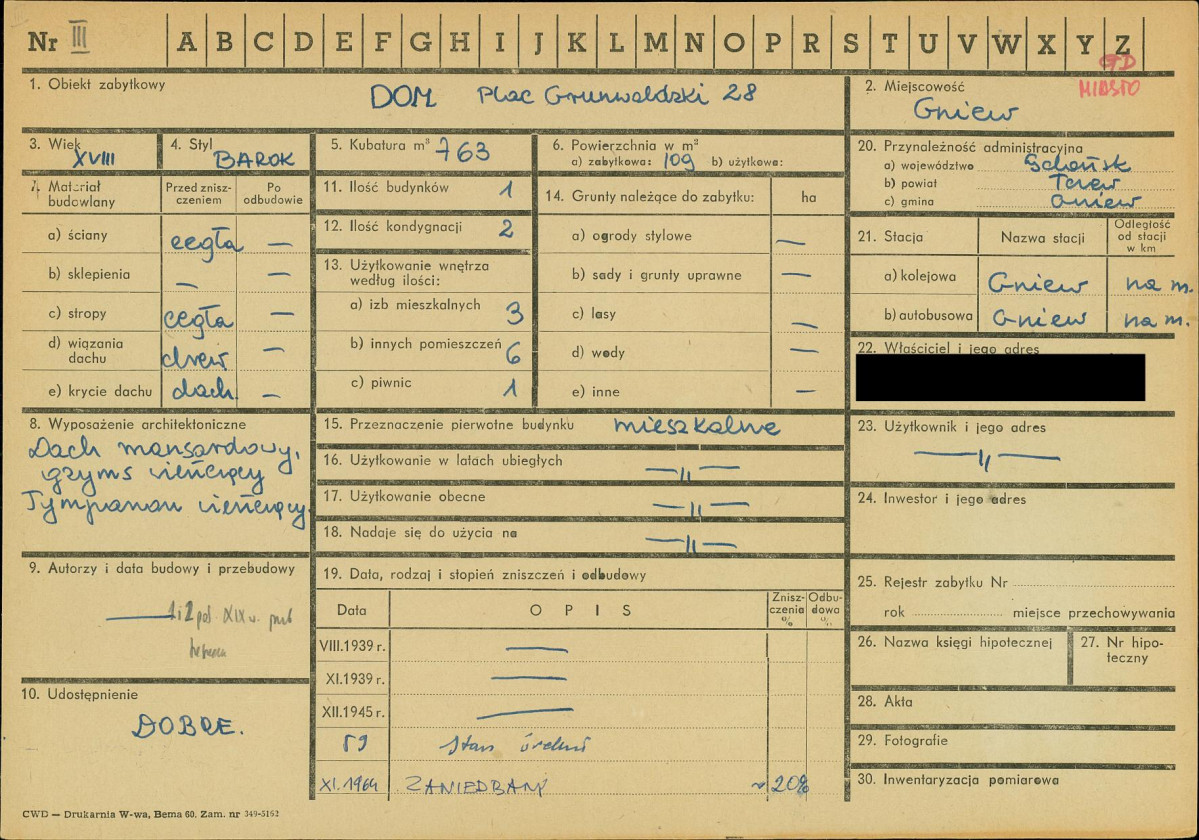 Nr III A B C D E F G H I J K L M N O P R S T U V W X Y Z
GD
MIASTO
1. Obiekt zabytkowy
DOM Plac Grunwaldzki 28
2. Miejscowość
Gniew
3. Wiek
XVIII
4. Styl
BAROK
5. Kubatura m³ 763
6. Powierzchnia w m²
a) zabytkowa: 109 b) użytkowa:
20. Przynależność administracyjna
a) województwo Gdańsk
b) powiat Tczew
c) gmina Gniew
7. Materiał budowlany
Przed znisz-
czeniem
Po
odbudowie
a) ściany cegła —
b) sklepienia — —
c) stropy cegła —
d) wiązania
dachu drew —
e) krycie dachu dach. —
11. Ilość budynków 1
12. Ilość kondygnacji 2
13. Użytkowanie wnętrza
według ilości:
a) izb mieszkalnych 3
b) innych pomieszczeń 6
c) piwnic 1
14. Grunty należące do zabytku: ha
a) ogrody stylowe —
b) sady i grunty uprawne —
c) lasy —
d) wody —
e) inne —
21. Stacja
Nazwa stacji
Odległość
od stacji
w km
a) kolejowa Gniew na m.
b) autobusowa Gniew na m.
22. Właściciel i jego adres
8. Wyposażenie architektoniczne
Dach mansardowy,
gzyms wieńczący
Tympanon wieńczący.
15. Przeznaczenie pierwotne budynku mieszkalne
16. Użytkowanie w latach ubiegłych —〃—
17. Użytkowanie obecne —〃—
18. Nadaje się do użycia na —〃—
23. Użytkownik i jego adres
—〃—
24. Inwestor i jego adres
9. Autorzy i data budowy i przebudowy
— 1 i 2 poł. XIX w.
10. Udostępnienie
DOBRE.
19. Data, rodzaj i stopień zniszczeń i odbudowy
Data OPIS
Znisz-
czenia
%
Odbu-
dowa
%
VIII.1939 r. —
XI.1939 r. —
XII.1945 r. —
59 stan średni
XI.1964 ZANIEDBANY ~20%
25. Rejestr zabytku Nr
rok miejsce przechowywania
26. Nazwa księgi hipotecznej
27. Nr hipo-
teczny
28. Akta
29. Fotografie
30. Inwentaryzacja pomiarowa
CWD — Drukarnia W-wa, Bema 60. Zam. nr 349-5162